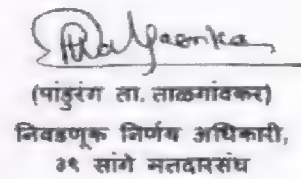 (पांडुरंग ता. ताळगांवकर)
निवडणूक निर्णय अधिकारी,
३९ सांगे मतदारसंघ